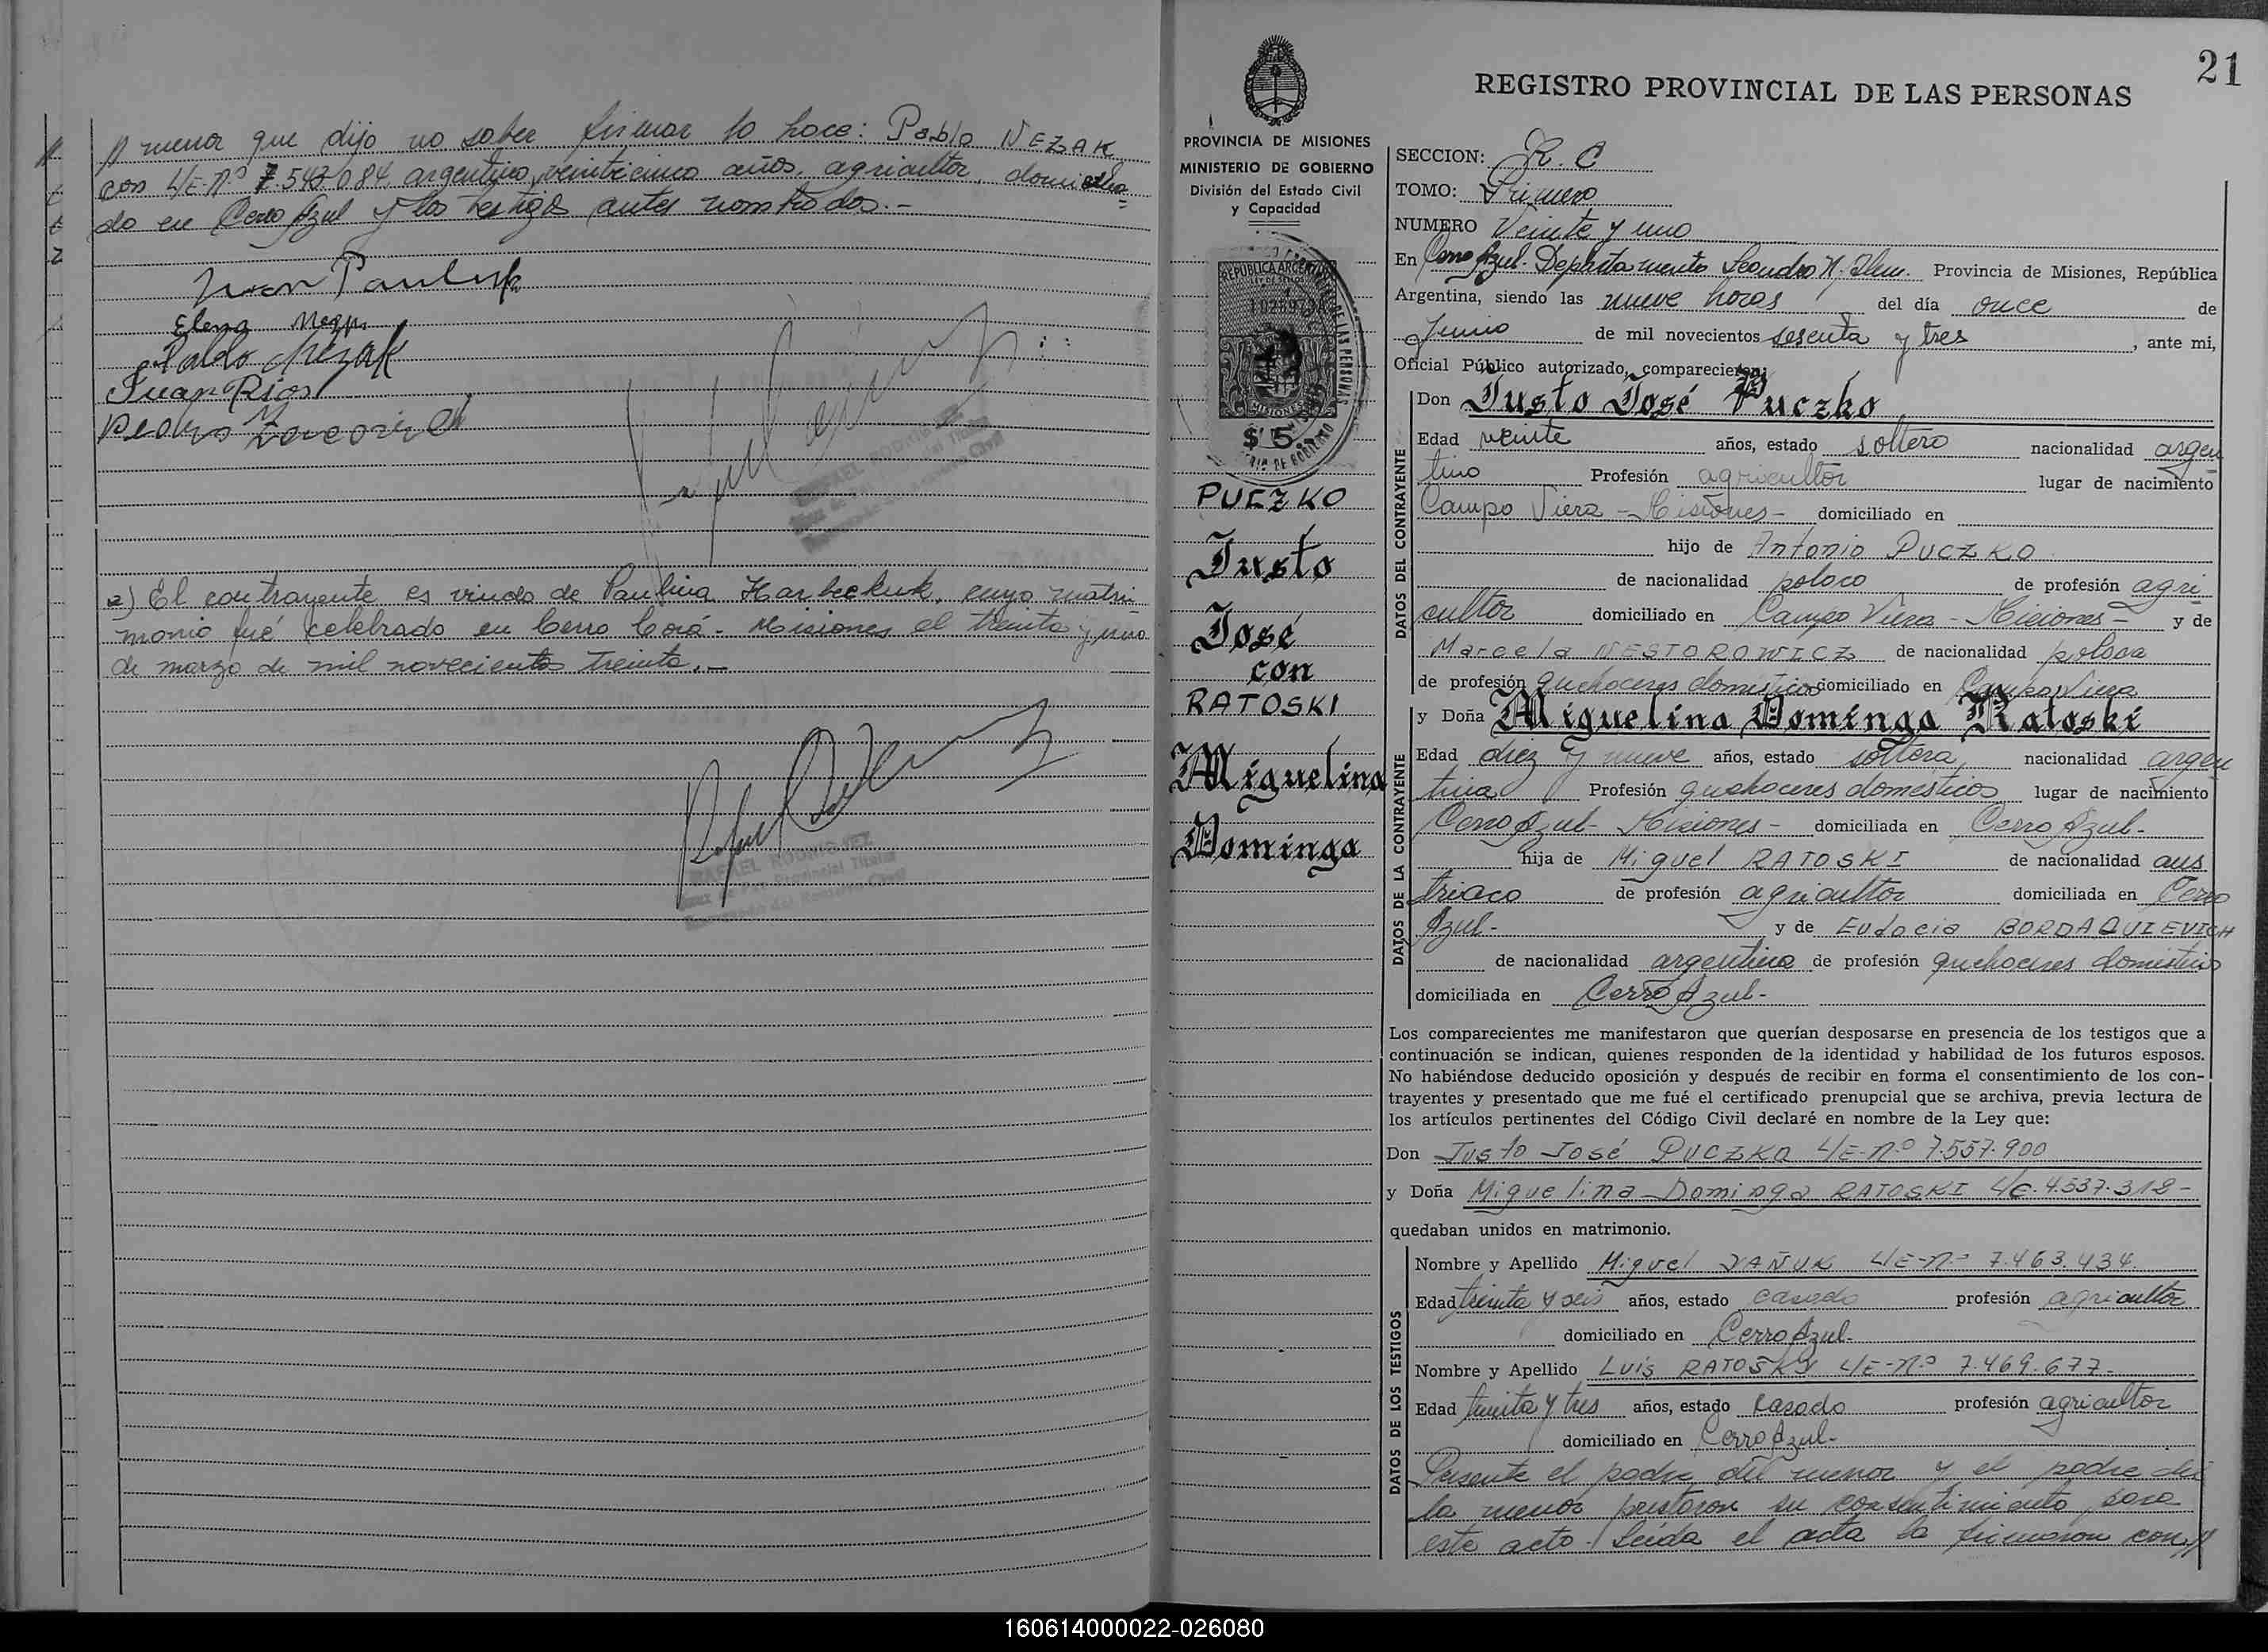 // menor que dijo no saber firmar lo hace: Pablo NEZAK
con L/E-Nº 7.543.084 argentino, veinticinco años, agricultor, domicilia
do en Cerro Azul y los testigos antes nombrados.-
Elena
Pablo Nezak
Juan Rios
Pedro
a) El contrayente es viudo de Paulina Harbeckuk, cuyo matri-
monio fué celebrado en Cerro Corá - Misiones el treinta y uno
de marzo de mil novecientos treinta.-
RAFAEL RODRIGUEZ
Juez de Paz Provincial Titular
21
REGISTRO PROVINCIAL DE LAS PERSONAS
PROVINCIA DE MISIONES
MINISTERIO DE GOBIERNO
División del Estado Civil
y Capacidad
REPUBLICA ARGENTINA
MISIONES
$ 5
PUCZKO
Justo
José
con
RATOSKI
Miguelina
Dominga
SECCION: R. C
TOMO: Primero
NUMERO Veinte y uno
En Cerro Azul- Departamento Leandro N. Alem. Provincia de Misiones, República
Argentina, siendo las nueve horas del día once de
Junio de mil novecientos sesenta y tres, ante mi,
Oficial Público autorizado, comparecieron:
DATOS DEL CONTRAYENTE
Don Justo José Puczko
Edad veinte años, estado soltero nacionalidad argen
tino Profesión agricultor lugar de nacimiento
Campo Viera - Misiones - domiciliado en
hijo de Antonio PUCZKO
de nacionalidad polaco de profesión agri
cultor domiciliado en Campo Viera - Misiones - y de
Marcela NESTOROWICZ de nacionalidad polaca
de profesión quehaceres domesticos domiciliado en Campo Viera
DATOS DE LA CONTRAYENTE
y Doña Miguelina Dominga Ratoski
Edad diez y nueve años, estado soltera, nacionalidad argen
tina Profesión quehaceres domesticos lugar de nacimiento
Cerro Azul- Misiones - domiciliada en Cerro Azul-
hija de Miguel RATOSKI de nacionalidad aus
triaco de profesión agricultor domiciliada en Cerro
Azul- y de Eudocia BORDAQUIEVICH
de nacionalidad argentina de profesión quehaceres domesticos
domiciliada en Cerro Azul-
Los comparecientes me manifestaron que querían desposarse en presencia de los testigos que a
continuación se indican, quienes responden de la identidad y habilidad de los futuros esposos.
No habiéndose deducido oposición y después de recibir en forma el consentimiento de los con-
trayentes y presentado que me fué el certificado prenupcial que se archiva, previa lectura de
los artículos pertinentes del Código Civil declaré en nombre de la Ley que:
Don Justo José PUCZKO L/E-Nº 7.557.900
y Doña Miguelina Dominga RATOSKI L/C. 4.537.312-
quedaban unidos en matrimonio.
DATOS DE LOS TESTIGOS
Nombre y Apellido Miguel YAÑUK L/E-Nº 7.463.434
Edad treinta y seis años, estado casado profesión agricultor
domiciliado en Cerro Azul-
Nombre y Apellido Luis RATOSKY L/E-Nº 7.469.677-
Edad treinta y tres años, estado casado profesión agricultor
domiciliado en Cerro Azul-
Presente el padre del menor y el padre de
la menor prestaron su consentimiento para
este acto. Leída el acta la firmaron con //
160614000022-026080